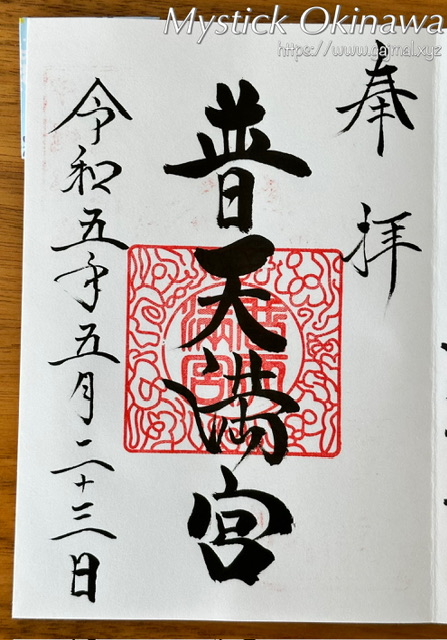 Mystick Okinawa
https://www.gajmal.xyz
奉拝
普天満宮
令和五年五月二十三日